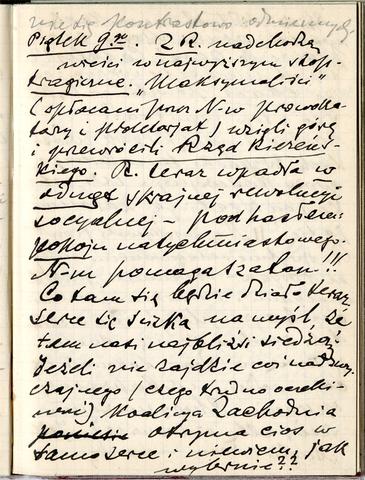 nie się kontrastowo odmiennych.
Piątek 9go. Z R. nadchodzą
wieści w najwyższym stop.
tragiczne. „Maksymaliści”
(opłacani przez N-w prowoka-
torzy i proletarjat) wzięli górę
i przewrócili Rząd Kiereńs-
kiego. R. teraz wpadła w
odmęt skrajnej rewolucji
socyalnej – pod hasłem:
pokoju natychmiastowego.
N-m pomaga szatan!!!
Co tam się będzie działo teraz,
serce się ściska na myśl, że
tam nasi najbliżsi siedzą!
Jeżeli nie zajdzie coś nadzwy-
czajnego (czego trudno oczeki-
wać) Koalicja Zachodnia
otrzyma cios w
samo serce i niewiem, jak
wybrnie??